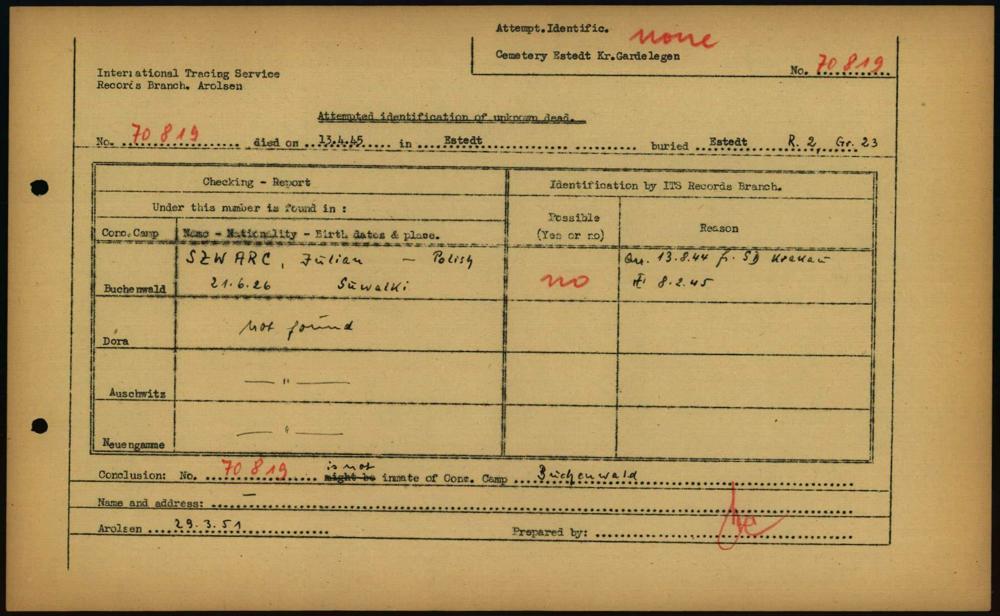 Attempt.Identific. none
Cemetery Estedt Kr.Gardelegen
No. 70 819
International Tracing Service
Records Branch. Arolsen
Attempted identification of unknown dead.
No. 70 819 died on 13.4.45 in Estedt buried Estedt R. 2, Gr. 23
Checking - Report
Identification by ITS Records Branch.
Under this number is found in :
Possible
(Yes or no)
Reason
Conc.Camp
Name - Nationality - Birth dates & place.
Buchenwald
SZWARC, Julian - Polish
21.6.26 Suwalki
no
Arr. 13.8.44 fr. SD Krakau
8.2.45
Dora
not found
Auschwitz
— " —
Neuengamme
— " —
Conclusion: No. 70 819 is not might be inmate of Conc. Camp Buchenwald
Name and address: —
Arolsen 29.3.51 Prepared by: